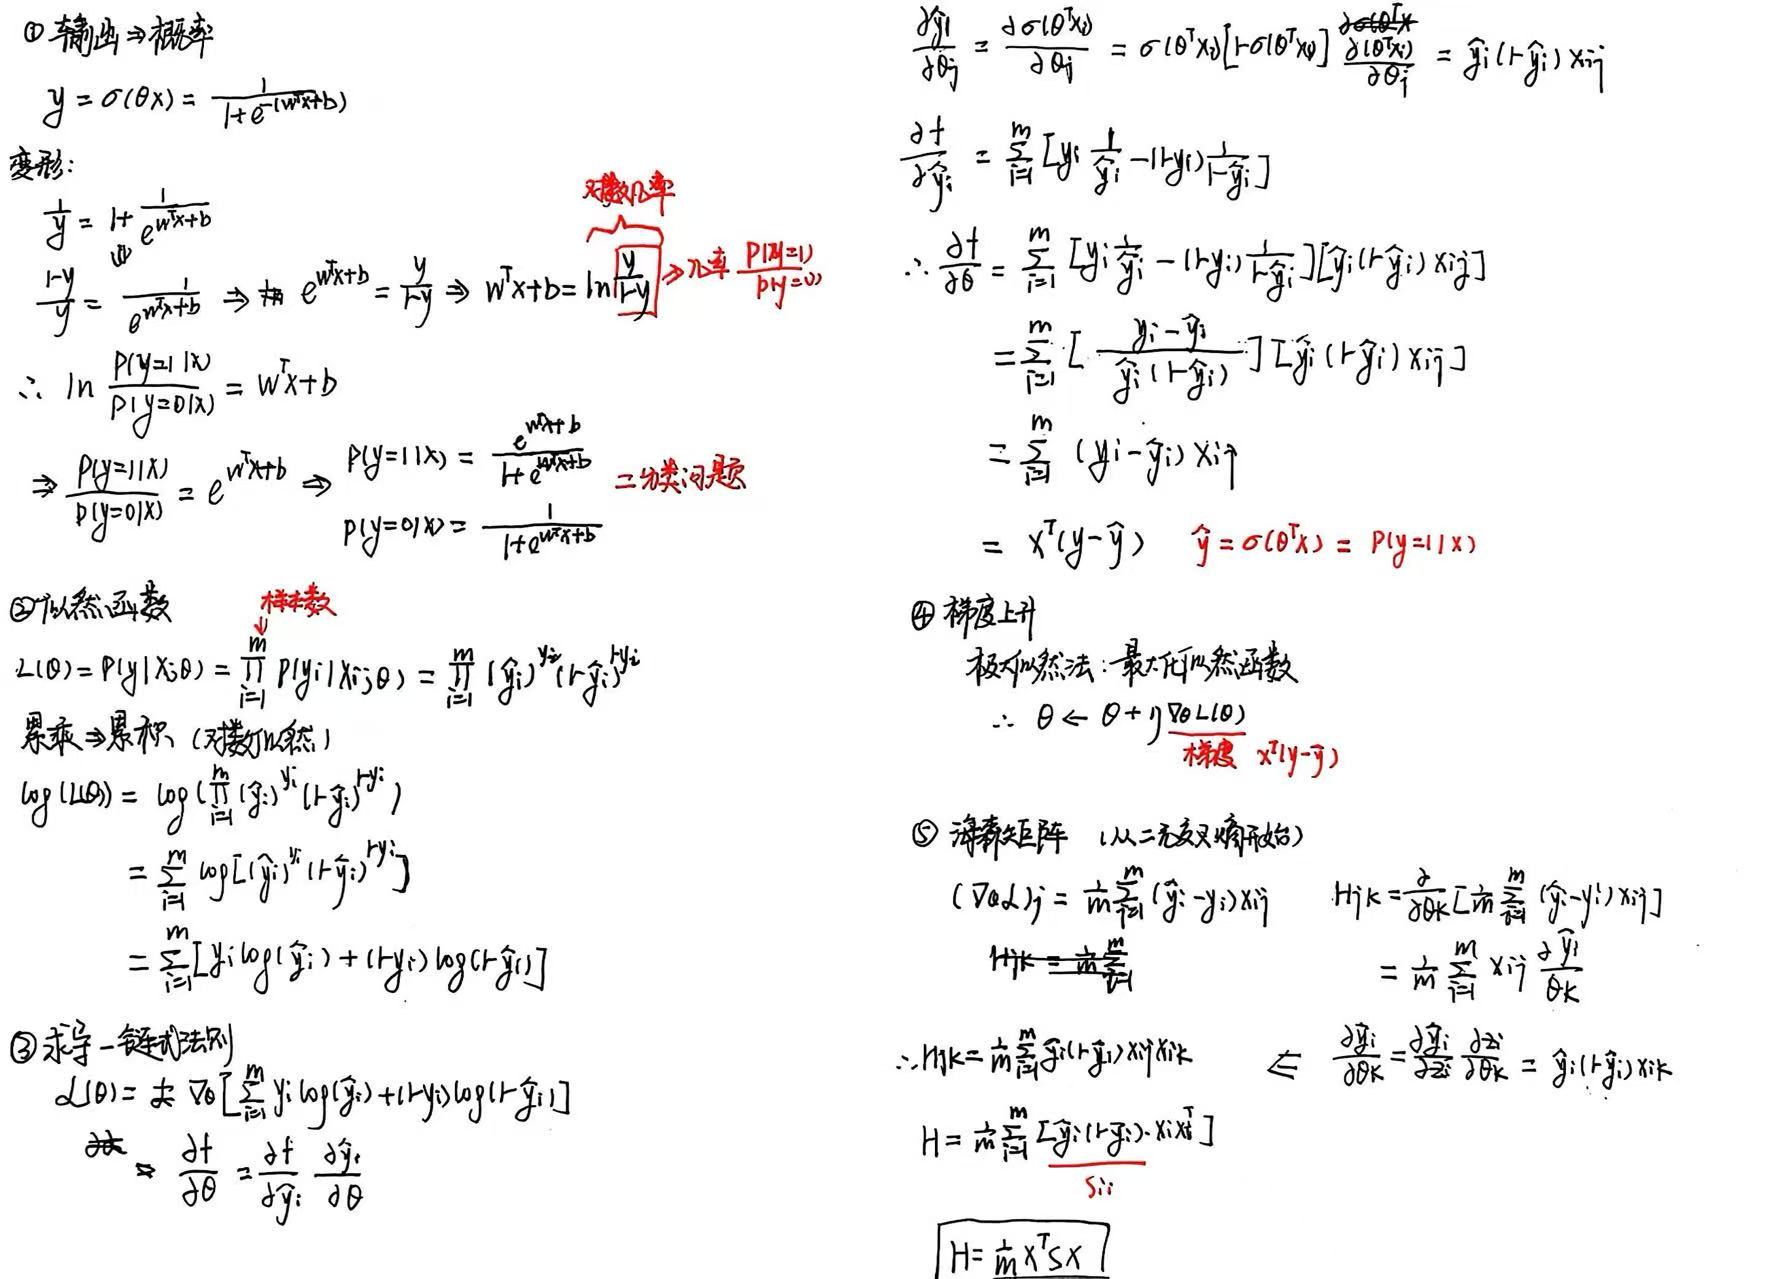 ① 输出⇒概率
y = σ(θx) = 1/(1+e^-(wᵀx+b))
变形:
1/y = 1 + 1/e^(wᵀx+b)
⇓
(1-y)/y = 1/e^(wᵀx+b) ⇒ e^(wᵀx+b) = y/(1-y) ⇒ wᵀx+b = ln y/(1-y) ⇒ 几率 P(y=1)/P(y=0)
对数几率
∴ ln P(y=1|x)/P(y=0|x) = wᵀx+b
⇒ P(y=1|x)/P(y=0|x) = e^(wᵀx+b) ⇒ P(y=1|x) = e^(wᵀx+b)/(1+e^(wᵀx+b)) 二分类问题
P(y=0|x) = 1/(1+e^(wᵀx+b))
② 似然函数 样本数
L(θ) = P(y|x;θ) = ∏_{i=1}^{m} P(yi|xi;θ) = ∏_{i=1}^{m} (ŷi)^yi (1-ŷi)^(1-yi)
累乘⇒累积 (对数似然)
log(L(θ)) = log(∏_{i=1}^{m} (ŷi)^yi (1-ŷi)^(1-yi))
= ∑_{i=1}^{m} log[(ŷi)^yi (1-ŷi)^(1-yi)]
= ∑_{i=1}^{m} [yi log(ŷi) + (1-yi) log(1-ŷi)]
③ 求导-链式法则
L(θ) = 求 ∇θ[∑_{i=1}^{m} yi log(ŷi) + (1-yi) log(1-ŷi)]
⇒ ∂f/∂θ = ∂f/∂ŷi ∂ŷi/∂θ
∂ŷi/∂θj = ∂σ(θᵀxi)/∂θj = σ(θᵀxi)[1-σ(θᵀxi)] ∂(θᵀxi)/∂θj = ŷi(1-ŷi)xij
∂f/∂ŷi = ∑_{i=1}^{m} [yi 1/ŷi - (1-yi) 1/(1-ŷi)]
∴ ∂f/∂θ = ∑_{i=1}^{m} [yi 1/ŷi - (1-yi) 1/(1-ŷi)][ŷi(1-ŷi)xij]
= ∑_{i=1}^{m} [(yi-ŷi)/(ŷi(1-ŷi))][ŷi(1-ŷi)xij]
= ∑_{i=1}^{m} (yi-ŷi)xij
= xᵀ(y-ŷ) ŷ = σ(θᵀx) = P(y=1|x)
④ 梯度上升
极大似然法: 最大化似然函数
∴ θ ← θ + η∇θL(θ)
梯度 xᵀ(y-ŷ)
⑤ 海森矩阵 (从二元交叉熵开始)
(∇θL)j = 1/m ∑_{i=1}^{m} (ŷi-yi)xij Hjk = ∂/∂θk [1/m ∑_{i=1}^{m} (ŷi-yi)xij]
Hjk = 1/m ∑_{i=1}^{m} = 1/m ∑_{i=1}^{m} xij ∂ŷi/θk
∴ Hjk = 1/m ∑_{i=1}^{m} ŷi(1-ŷi)xijxik ⇐ ∂ŷi/∂θk = ∂ŷi/∂zi ∂zi/∂θk = ŷi(1-ŷi)xik
H = 1/m ∑_{i=1}^{m} [ŷi(1-ŷi)·xixiᵀ]
Sii
H = 1/m XᵀSX